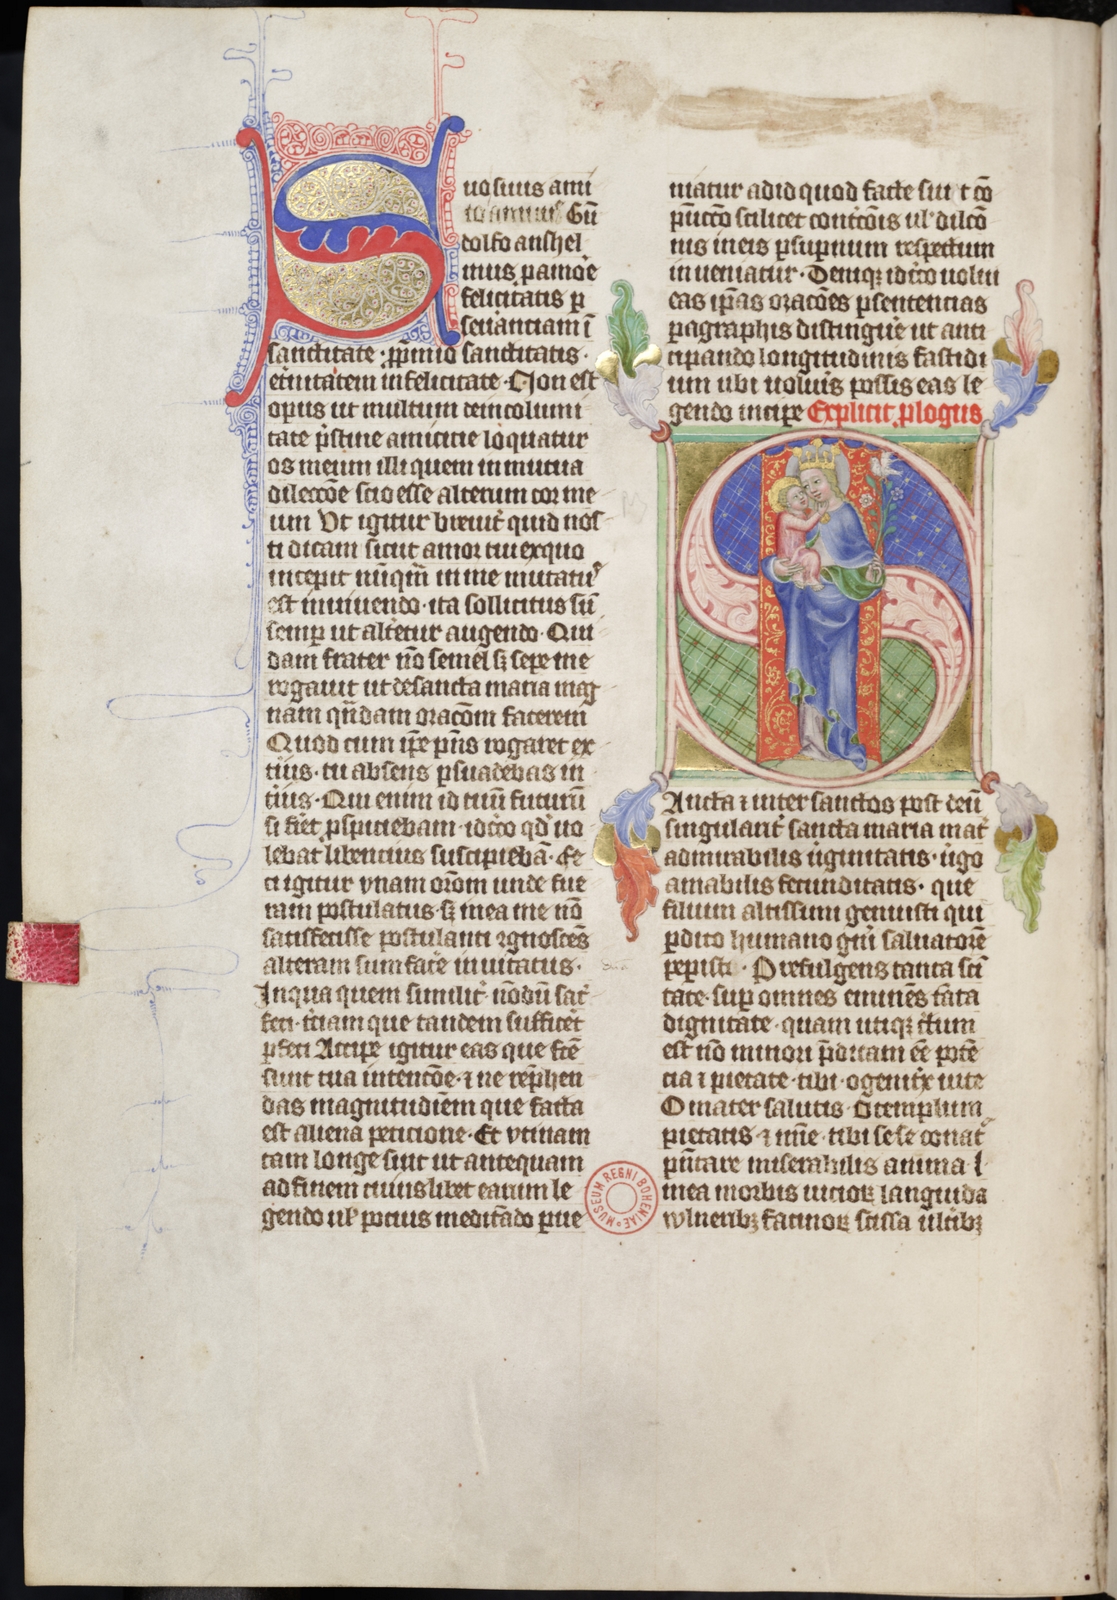 S
uo suus ami
Gū
dolfo anshel
mus p amōe
felicitatis p
seuāntiam ī
sanctitate · p̄mio sanctitatis ·
et̄nitatem in felicitate · Non est
opus ut multum de incolumi
tate p̄stine amicicie loquatur
os meum illi quem in mutua
dileccōe scio esse alterum cor me
um Ut igitur breuit̄ quid nos
ti dicam sicut amor tui ex quo
incepit nūq̄m in me mutatꝰ
est minuendo · ita sollicitus sū
semp̄ ut alt̄etur augendo · Qui
dam frater nō semel sꝫ sepe me
rogauit ut de sancta maria mag
nam qn̄dam orac̄om facerem
Quod cum ip̄e pn̄s rogaret ex
cius · tu absens p̄suadebas in
tius · Qui enim id tuū futurū
si fiet p̄spiciebam · idc̄co qd̄ uo
lebat̄ libencius suscipiebā · fe
ci igitur vnam or̄om unde fue
ram postulatus · sꝫ mea me nō
satisfecisse postulanti ꝛgnoscēs
alteram sum fac̄e inuitatus ·
In qua quem similit̄ nōdū sat̄
feci · t̄ciam que tandem sufficet̄
p̄feci Accipe igitur eas que fc̄e
sunt tua intencōe · ⁊ ne rep̄hen
das magnitudīem que facta
est aliena peticione · Et vtinam
tam longe sint ut antequam
ad finem cuiuslibet earum le
gendo ul̄ pocius medit̄ādo pue
niatur ad id quod facte su t cō
pūccō scilicet contc̄ōis ul̄ dilcō
nis in eis p supnum respectum
inueniatur · Deniqꝫ idc̄co uolui
eas ip̄as orac̄ōes p sentencias
paragraphis distingūe ut anti
cipando longitudinis fastidi
um ubi uolūis possis eas le
gendo incipe Explicit p̄logus
S
Ancta ⁊ inter sanctos post deū
singularit̄ sancta maria mat̄
admirabilis ūginitatis · ūgo
amabilis fecunditatis · que
filium altissimi genuisti qui
p̄dito humano gn̄i saluatorē
pepisti · Prefulgens tanta sc̄i
tate · sup̄ omnes eminēs tāta
dignitate · quam utiqꝫ c̄tum
est nō minori p̄ditam eē potē
cia ⁊ pietate · tibi · o genit̄x uite
O mater salutis · O templum
pietatis ⁊ mīe · tibi sese conat̄
pn̄tare miserabilis anima
mea morbis uicioꝝ languida
wlneribꝫ facinoꝝ scissa ulc̄ibꝫ
MUSEUM REGNI BOHEMIAE